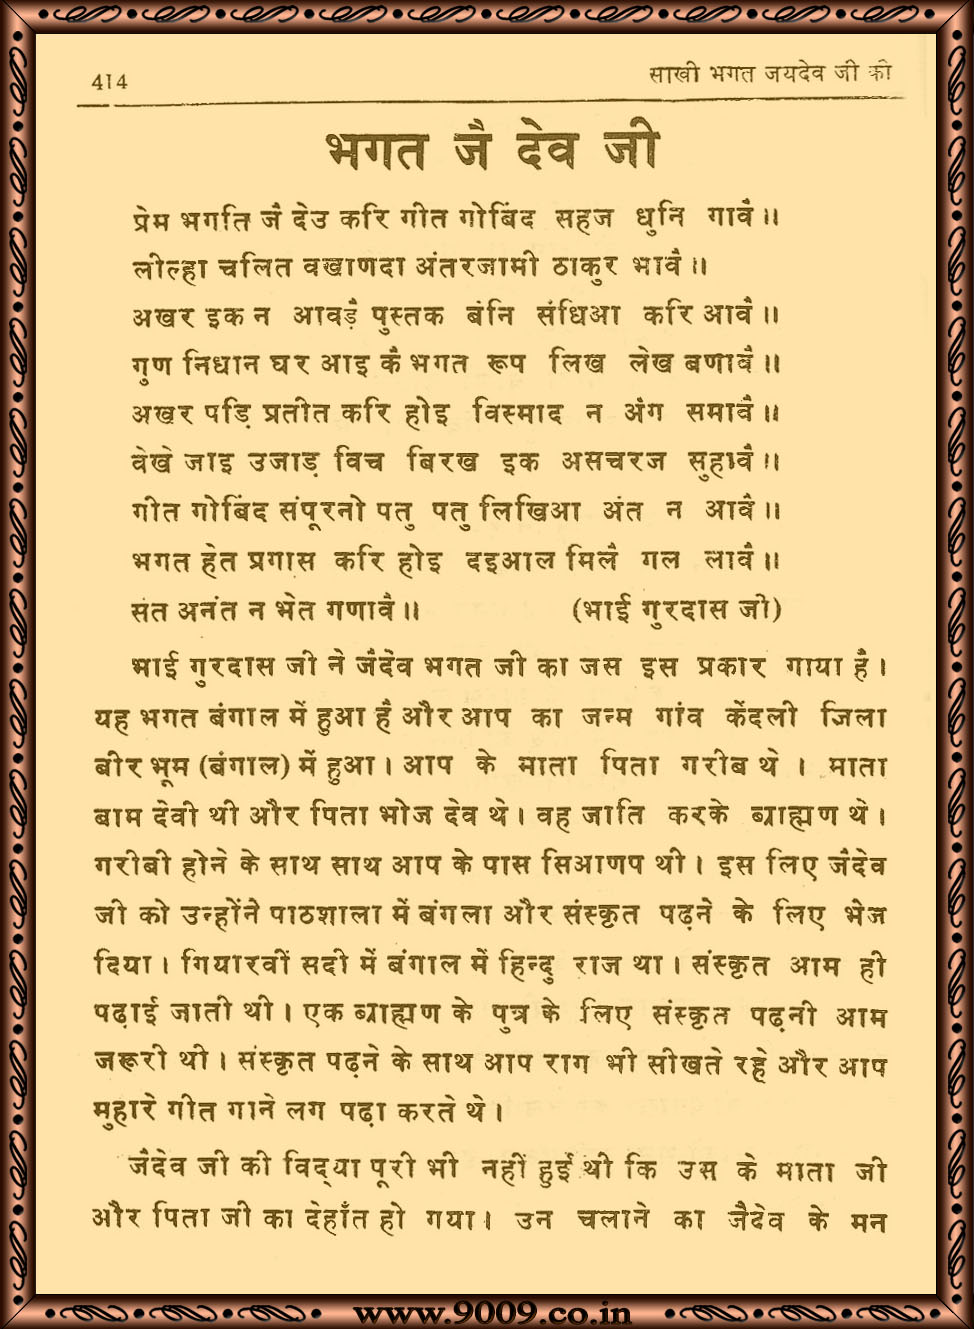 414
साखी भगत जयदेव जी की
भगत जै देव जी
प्रेम भगति जै देउ करि गीत गोबिंद सहज धुनि गावै॥
लील्हा चलित वखाणदा अंतरजामी ठाकुर भावै॥
अखर इक न आवड़ै पुस्तक बंनि संधिआ करि आवै॥
गुण निधान घर आइ कै भगत रूप लिख लेख बणावै॥
अखर पड़ि प्रतीत करि होइ विस्माद न अंग समावै॥
वेखे जाइ उजाड़ विच बिरख इक असचरज सुहावै॥
गीत गोबिंद संपूरनो पतु पतु लिखिआ अंत न आवै॥
भगत हेत प्रगास करि होइ दइआल मिलै गल लावै॥
संत अनंत न भेत गणावै॥ (भाई गुरदास जी)
भाई गुरदास जी ने जैदेव भगत जी का जस इस प्रकार गाया है।
यह भगत बंगाल में हुआ है और आप का जन्म गांव केंदली जिला
बीर भूम (बंगाल) में हुआ। आप के माता पिता गरीब थे । माता
बाम देवी थी और पिता भोज देव थे। वह जाति करके ब्राह्मण थे।
गरीबी होने के साथ साथ आप के पास सिआणप थी। इस लिए जैदेव
जी को उन्होंने पाठशाला में बंगला और संस्कृत पढ़ने के लिए भेज
दिया। गियारवीं सदी में बंगाल में हिन्दु राज था। संस्कृत आम ही
पढ़ाई जाती थी। एक ब्राह्मण के पुत्र के लिए संस्कृत पढ़नी आम
जरूरी थी। संस्कृत पढ़ने के साथ आप राग भी सीखते रहे और आप
मुहारे गीत गाने लग पढ़ा करते थे।
जैदेव जी की विद्या पूरी भी नहीं हुई थी कि उस के माता जी
और पिता जी का देहाँत हो गया। उन चलाने का जैदेव के मन
www.9009.co.in